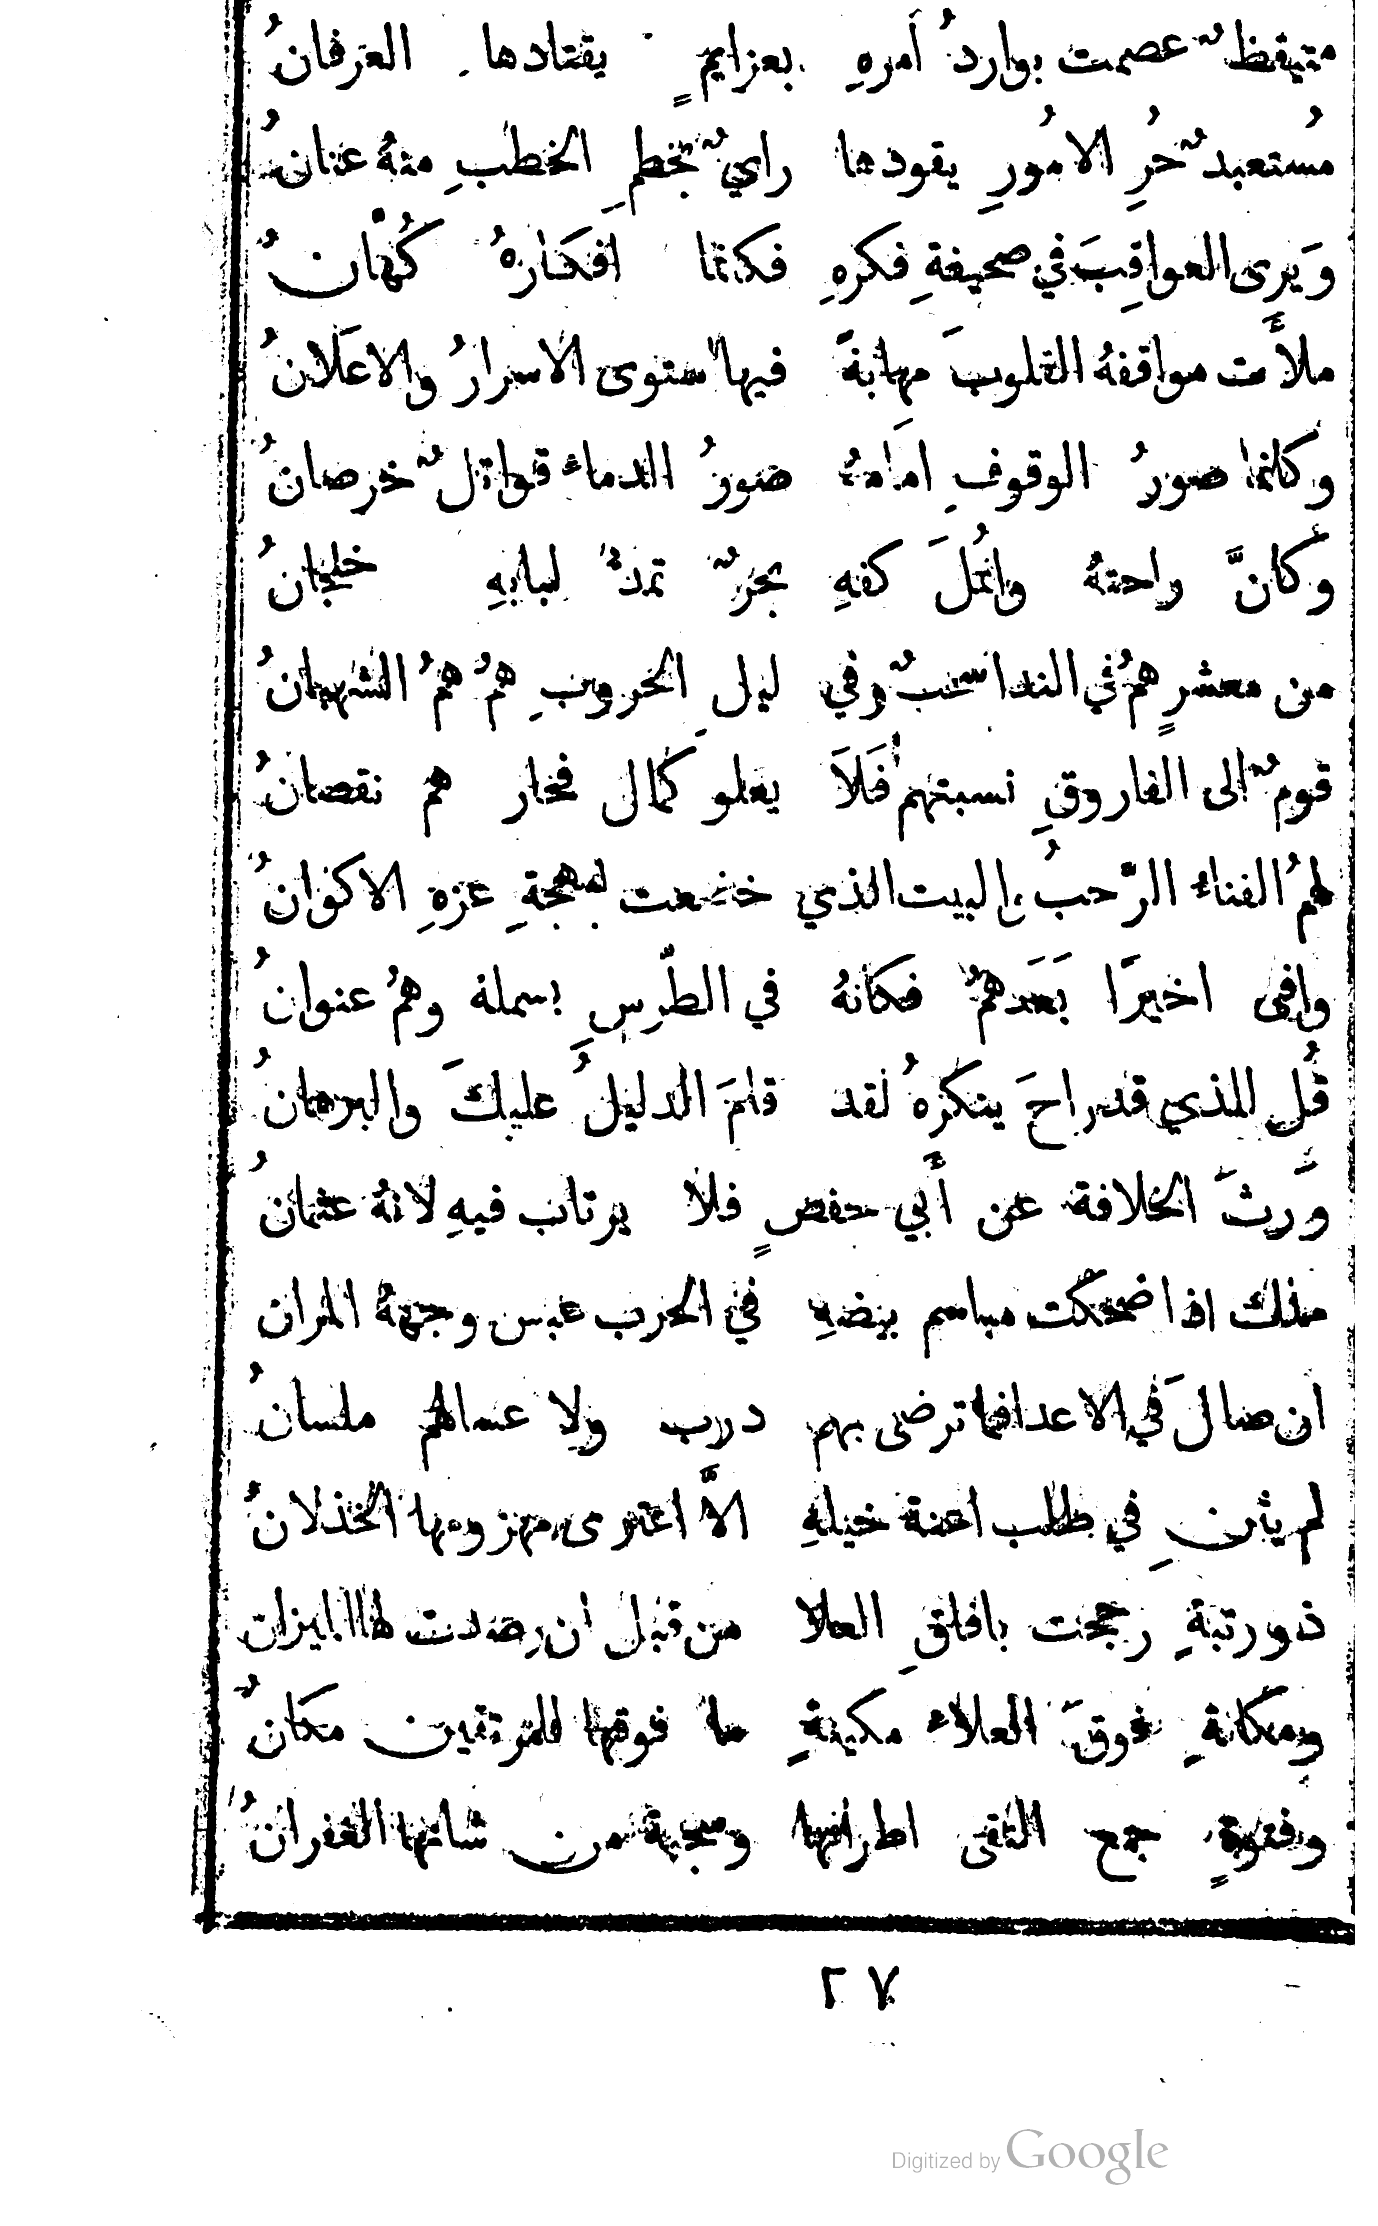 متيقظٌ عصمت بواردُ أمرهِ بعزايمٍ يقتادها العرفانُ
مُستعبدٌ حُرِ الامُورِ يقودها رايٌ بخطمِ الخطبِ منهُ عنانُ
وَيرى العواقِبَ في صحيفةِ فكرهِ فكانما افكارهُ كُهَّانُ
ملأَت مواقفهُ القلوبَ مهابةً فيها استوى الاسرارُ والاعلانُ
وكانما صورُ الوقوفِ امامهُ صورُ الدماء قواتلٌ خرصانُ
وكانَّ راحتهُ وانمُلَ كفهِ بحرٌ تمدهُ لبابهِ خلجانُ
من معشرٍ همُ في الندا سحبٌ وفي ليلِ الحروبِ همُ همُ الشهبانُ
قومٌ الى الفاروقِ نسبتهم فَلَا يعلو كمال فخارهم نقصانُ
لهمُ الفناء الرَّحبُ والبيت الذي خضعت لبهجةِ عزهِ الاكوانُ
وافى اخيرًا بَعَدَهمُ فكانهُ في الطّرسِ بسملة وهمُ عنوانُ
قُل للذي قد راحَ ينكرهُ لقد قامَ الدليلُ عليكَ والبرهانُ
وَرثَ الخلافة عن أَبي حفصٍ فلا يرتاب فيهِ لانهُ عثمانُ
ملك اذا ضحكت مباسم بيضهِ في الحرب عبس وجههُ المران
ان صالَ في الاعدا فما ترضى بهم درب ولا عسالهم ملسانُ
لم يثنِ في طلب اعنة خيلهِ الَّا اعترى مهزومها الخذلانُ
ذو رتبةٍ رجحت بافاقِ العلا من قبل ان رصدت لها الميزان
ومكانةٍ فوقَ العلاء مكينةٍ ما فوقها للمرتقين مكانُ
وفتوةٍ جمع التقى اطرافها وسجية من شانها الغفرانُ
٢٧
Digitized by Google